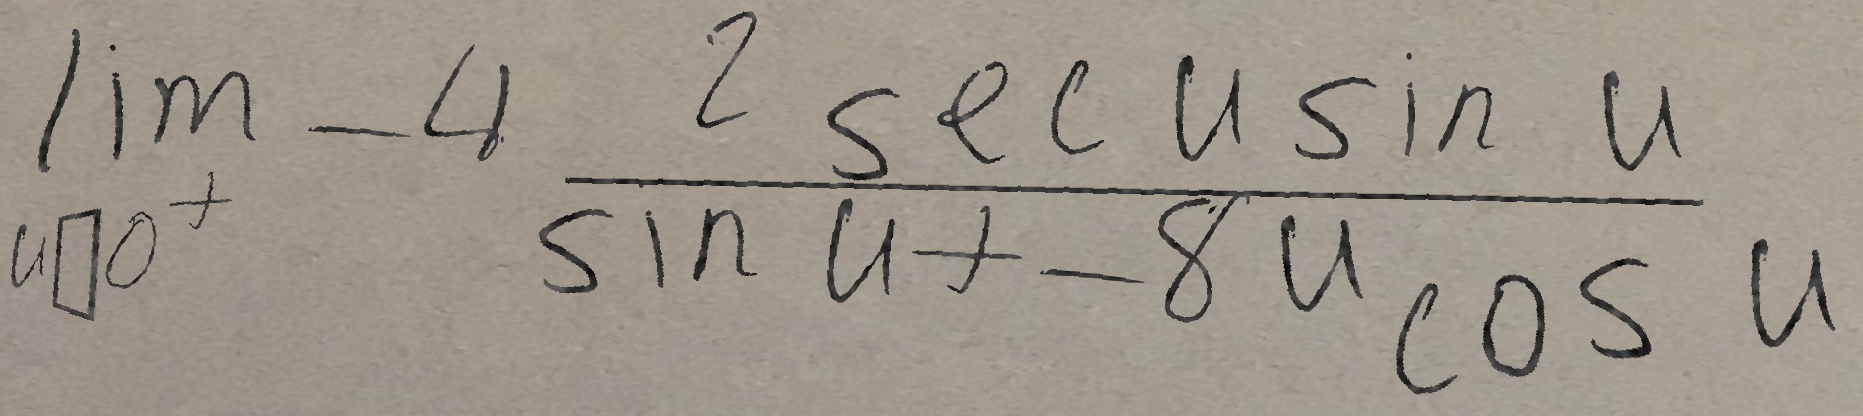 lim -4 2 sec u sin u
u▯0⁺ sin u + -8u cos u